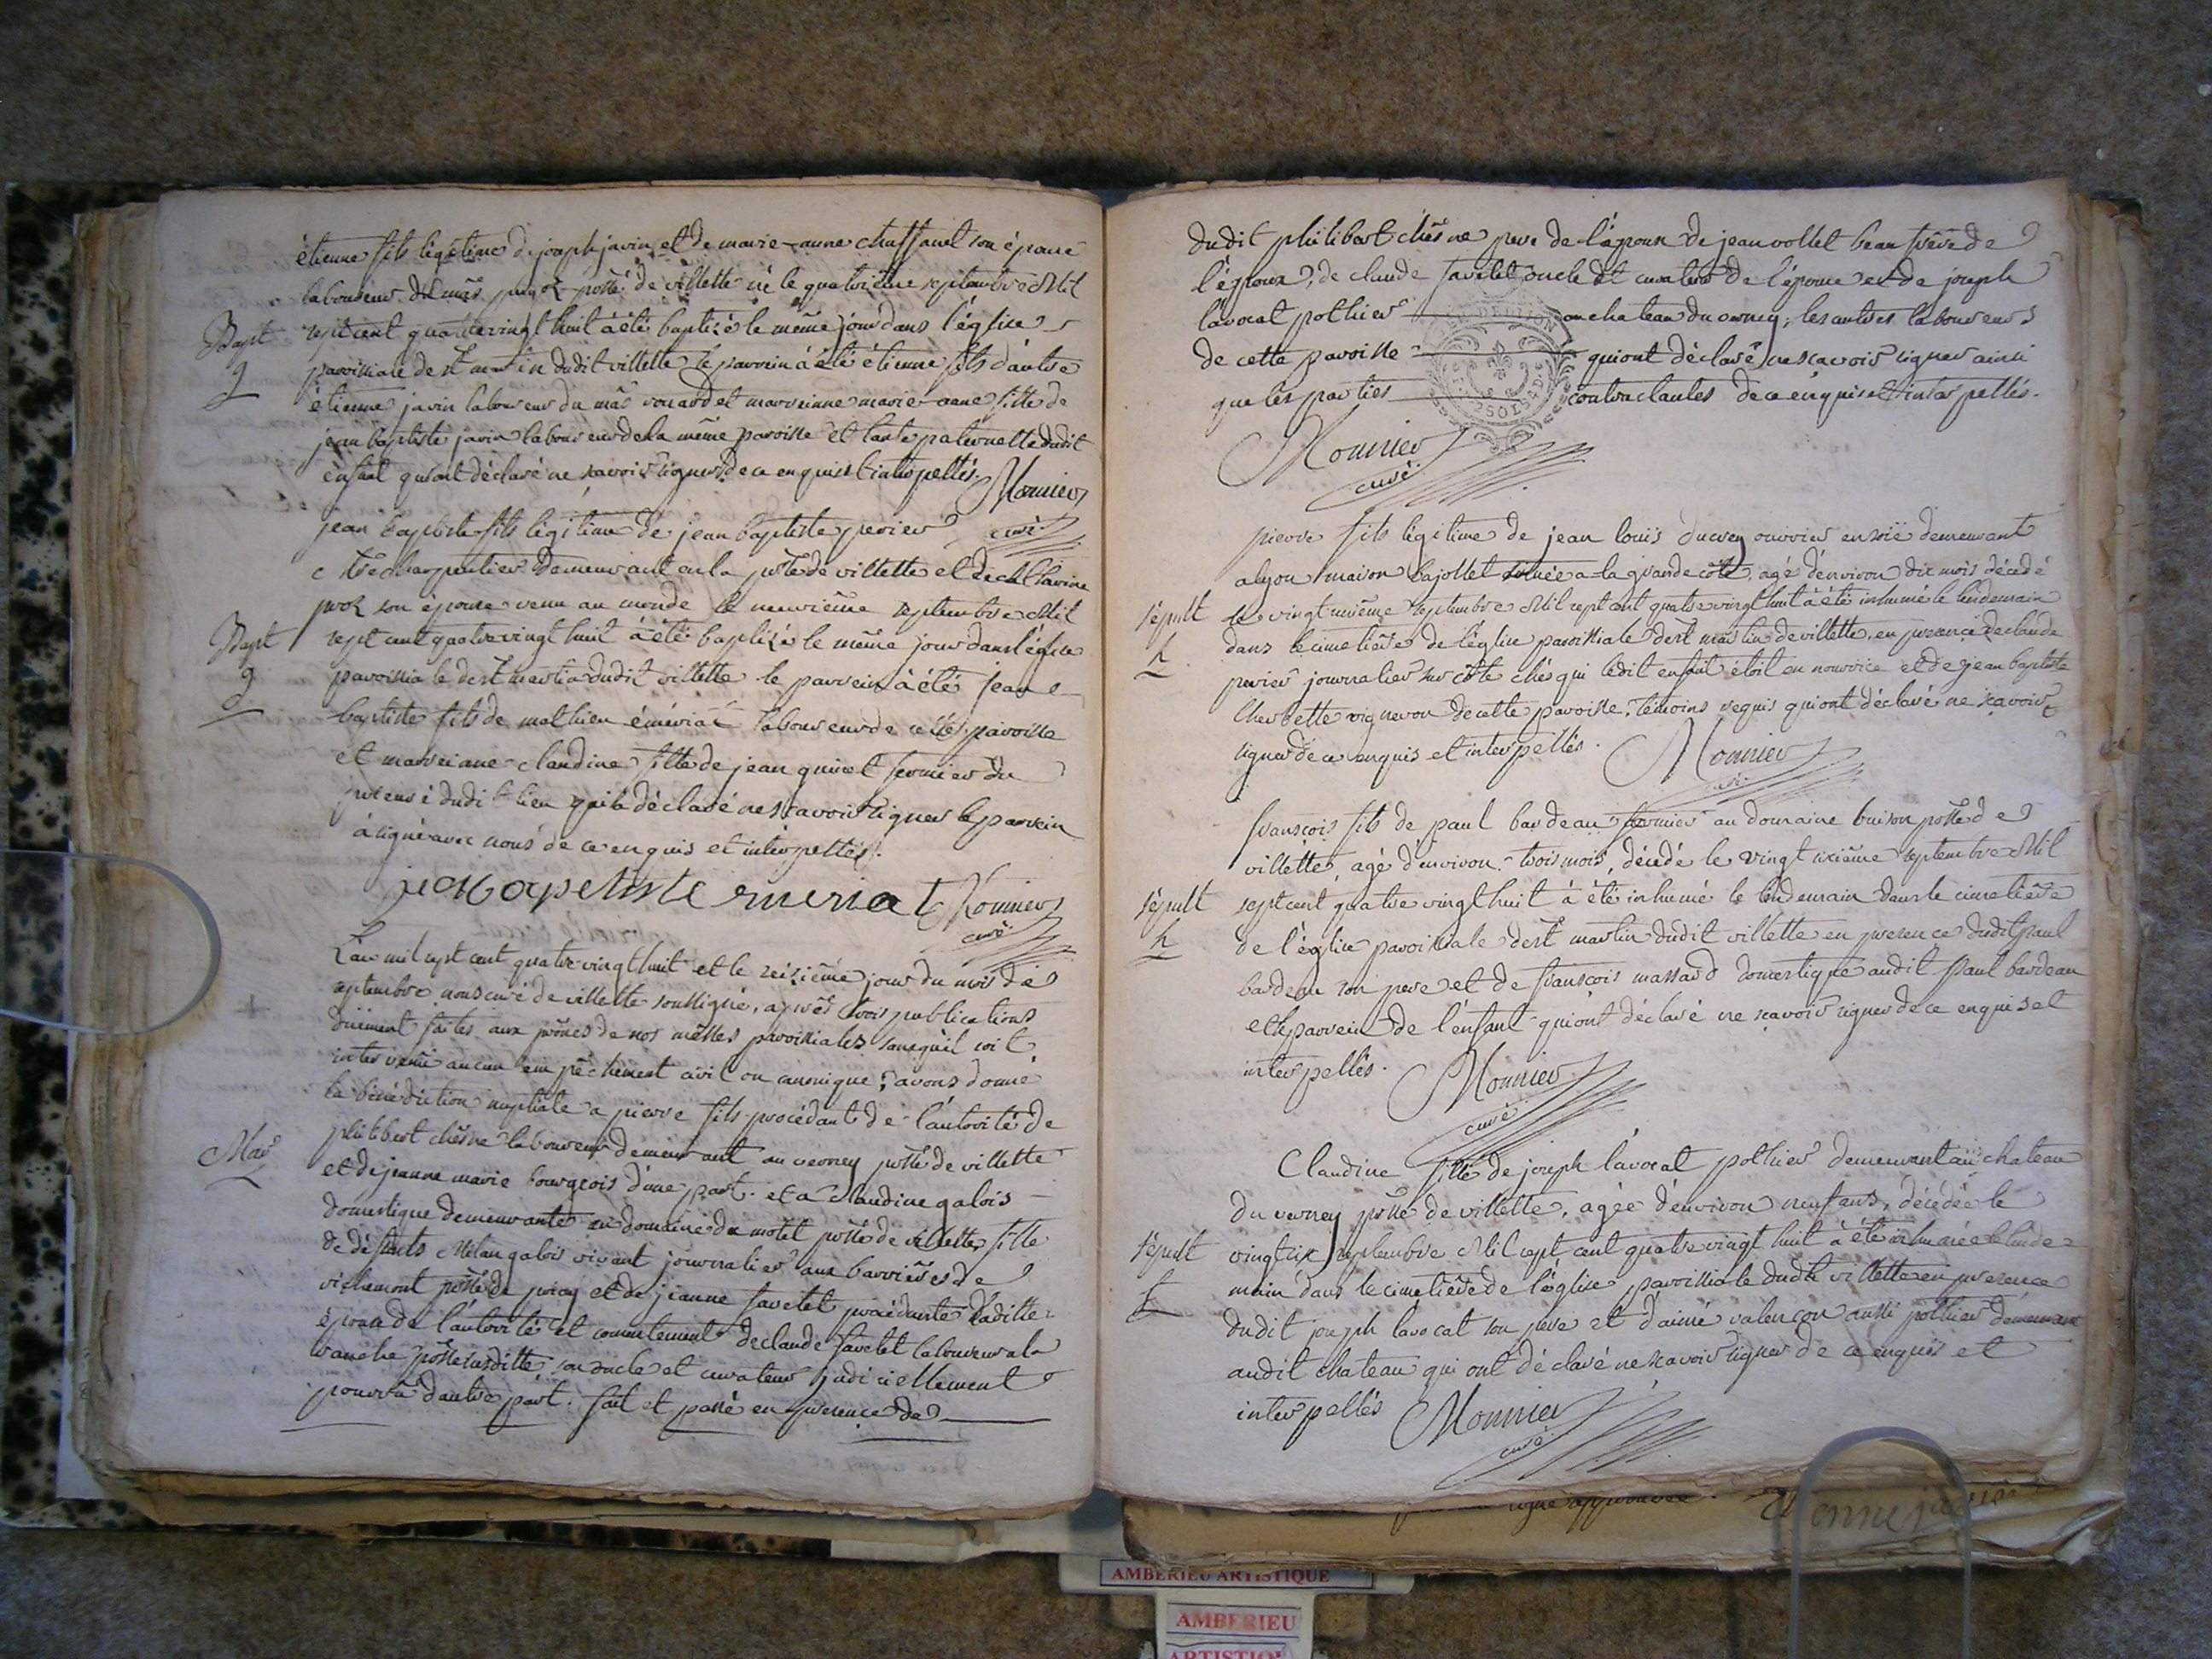 étienne fils légitime de joseph javin et de marie-anne chaffanel son épouse
laboureur du mâs pugoz posse de villette né le quatorzième septembre Mil
Bapt sept cent quatre vingt huit à été baptizé le même jour dans l'église
g paroissiale de st martin dudit villette le parrein à été étienne fils d'autre
étienne javin laboureur du mâs ronard et marreinne marie-anne fille de
jean baptiste javin laboureur de la même paroisse et tante paternelle dudit
enfant qui ont déclaré ne scavoir signer de ce enquis et interpellés. Monnier
curé
jean baptiste fils légitime de jean baptiste perier
Me charpentier demeurant en la posse de villette et de
son épouse venu au monde le neuvième septembre Mil
Bapt sept cent quatre vingt huit à été baptizé le même jour dans l'église
g paroissiale de st martin dudit villette le parrein à été jean
baptiste fils de mathieu émériat laboureur de cette paroisse
et marreiane claudine fille de jean quinet fermier du
dudit lieu qui à déclaré ne scavoir signer le parrein
à signé avec nous de ce enquis et interpellés.
jean bapetiste emeriat Monnier
curé
L'an mil sept cent quatre vingt huit et le seizième jour du mois de
septembre nous curé de villette soussigné, après trois publications
duëment faites aux prônes de nos messes paroissiales sans qu'il soit
intervenu aucun empêchement civil ou canonique, avons donné
la bénédiction nuptiale a pierre fils procédant de l'autorité de
Mar philibert chêsne laboureur demeurant au verney posse de villette
et de jeanne marie bourgeois d'une part. et a claudine galois
domestique demeurante au domaine du motel posse de villette, fille
de défunts Milan galois vivant journalier aux barrières de
richemont posse de priay et de jeanne favelet procédante laditte
épouse de l'autorité et consentement de claude favelet laboureur a la
ranche posse susditte son oncle et curateur judiciellement
pourvû d'autre part. fait et passé en presence de
dudit philibert chêsne pere de l'époux de jean vollet beau frère de
l'époux, de claude favelet oncle et curateur de l'épouse et de joseph
lavocat pothier au chateau du verney, les autres laboureurs
de cette paroisse qui ont déclaré ne scavoir signer ainsi
que les parties contractantes de ce enquis et interpellés.
Monnier
curé
pierre fils légitime de jean louis ducrey ouvrier en soïe demeurant
alyon maison bajollet située a la grande côte, agé d'environ dix mois décédé
sépult le vingt unième septembre Mil sept cent quatre vingt huit à été inhumé le lendemain
h dans le cimetière de l'église paroissiale de st martin de villette, en presence de claude
perier journalier sur côte chés qui ledit enfant étoit en nourrice et de jean baptiste
cherbette vigneron de cette paroisse, témoins requis qui ont déclaré ne scavoir
signer de ce enquis et interpellés. Monnier
curé
françois fils de paul bardeau fermier au domaine buison posse de
villette, agé d'environ trois mois, décédé le vingt sixième septembre Mil
sépult sept cent quatre vingt huit à été inhumé le lendemain dans le cimetière
h de l'église paroissiale de st martin dudit villette en presence dudit paul
bardeau son pere et de françois massard domestique audit paul bardeau
et le parrein de l'enfant qui ont déclaré ne scavoir signer de ce enquis et
interpellés. Monnier
curé
Claudine fille de joseph lavocat pothier demeurant au chateau
du verney posse de villette, agée d'environ neuf ans, décédée le
sépult vingt six septembre Mil sept cent quatre vingt huit à été inhumée le lende-
f main dans le cimetière de l'église paroissiale dudit villette en presence
dudit joseph lavocat son pere et d'aimé valençon aussi pothier demeurant
audit chateau qui ont déclaré ne scavoir signer de ce enquis et
interpellés Monnier
curé
signe approuvée
AMBERIEU ARTISTIQUE
AMBERIEU
ARTISTIQUE